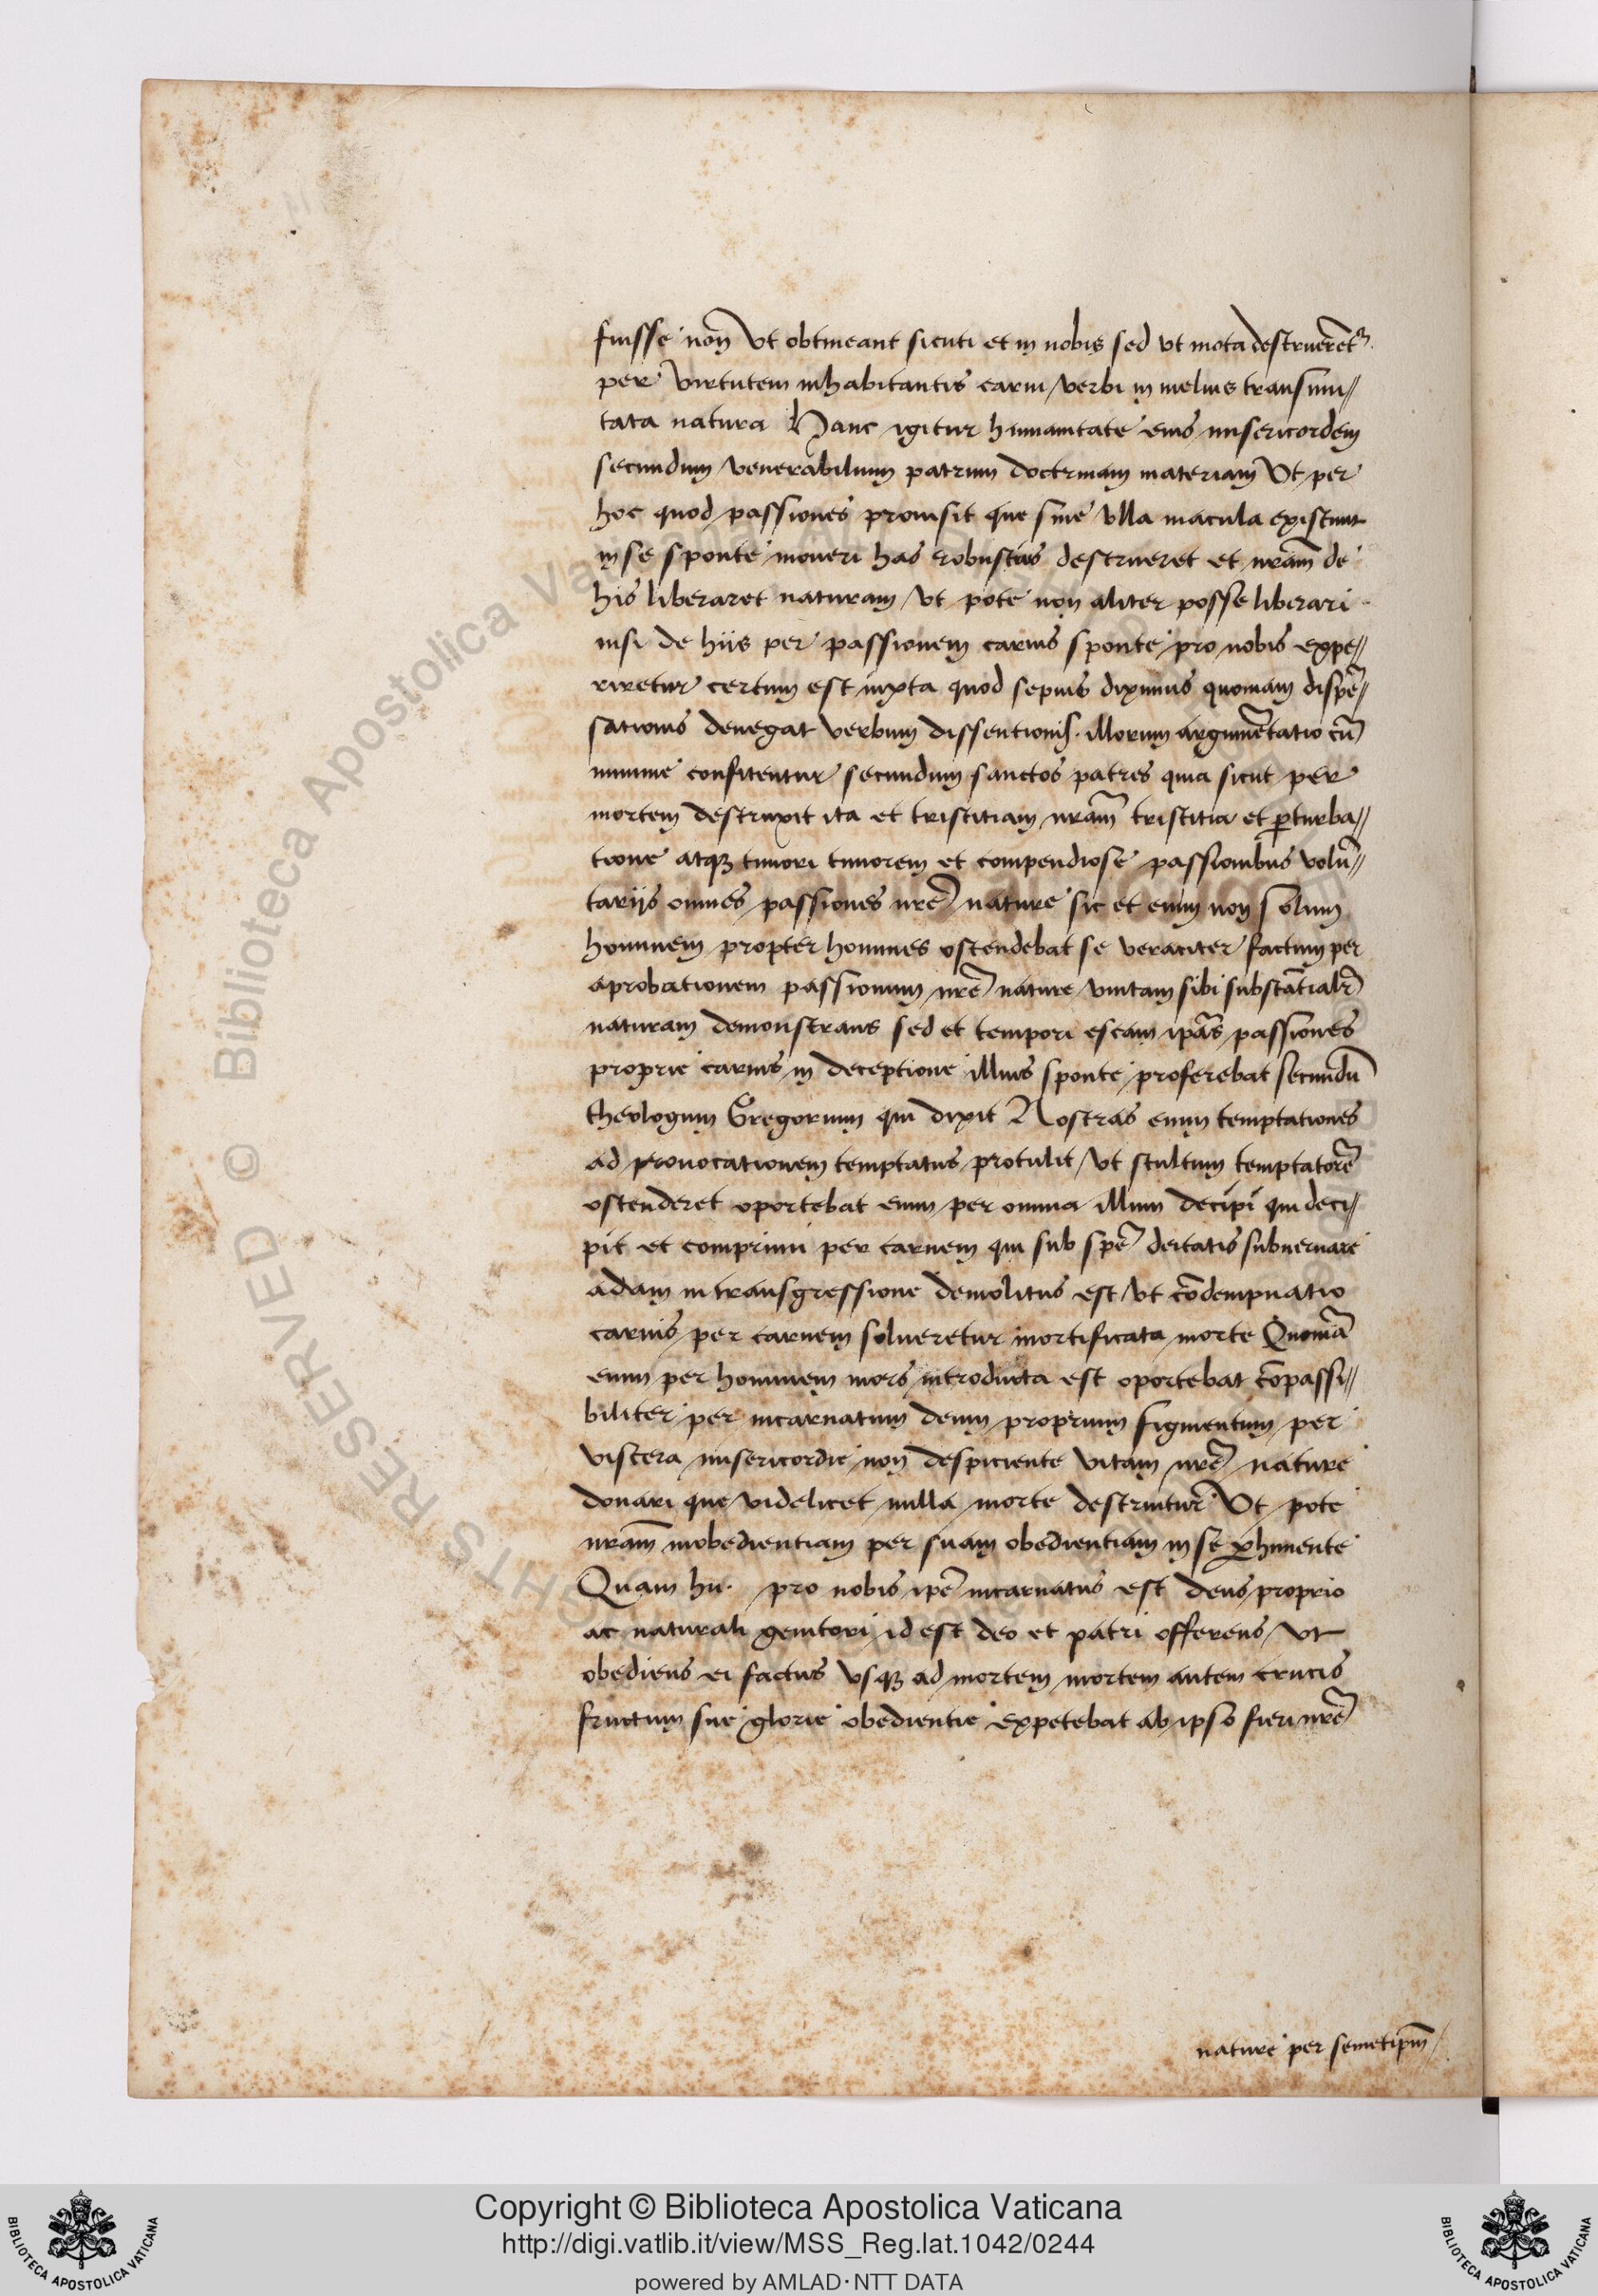 fuisse non̄ Vt obtineant sicuti et in nobis sed vt mota destruerēt᷑.
per Virtutem inhabitantis carni verbi in melius transmu//
tata natura Hanc igitur humanitate eius misericordem
secundum venerabilium patrum doctrinam materiam Vt per
hoc quod passiones promisit que sine vlla macula existunt
in se sponte moueri has robustas destrueret et nr̄am de
his liberaret naturam vt pote non aliter posse liberari
nisi de hiis per passionem carnis sponte pro nobis expe//
riretur certum est iuxta quod sepius diximus quoniam dispē//
sationis denegat verbum dissentionis. illorum argumētatio cū
minime confitentur secundum sanctos patres quia sicut per
mortem destruxit ita et tristitiam nr̄am tristitia et ꝑturba//
tione atqꝫ timori timorem et compendiose passionibus volū//
tariis omnes passiones nrē nature sic et enim non solum
hominem propter homines ostendebat se veraciter factum per
aprobationem passionum nrē nature vnitam sibi substātialr̄
naturam demonstrans sed et tempori escam ip̄as passiones
proprie carnis in deceptione illius sponte proferebat secundū
theologum Gregorium qui dixit Nostras enim temptationes
ad prouocationem temptatus protulit vt stultum temptatorē
ostenderet oportebat enim per omnia illum decipi qui deci//
pit et comprimi per carnem qui sub spē deitatis subneruare
adam in transgressione demolitus est vt cōdempnatio
carnis per carnem solueretur mortificata morte Quoniā
enim per hominem mors introducta est oportebat cōpassi//
biliter per incarnatum deum proprium figmentum per
viscera misericordie non despiciente vitam nrē nature
donari que videlicet nulla morte destruitur Vt pote
nr̄am inobedientiam per suam obedientiam in se ꝑhimente
Quam hu. pro nobis ip̄e incarnatus est deus proprio
ac naturali genitori id est deo et patri offerens vt
obediens ei factus vsqꝫ ad mortem mortem autem crucis
fructum sue glorie obedientie expetebat ab ipso fieri nrē
nature per semetip̄m
Copyright © Biblioteca Apostolica Vaticana
http://digi.vatlib.it/view/MSS_Reg.lat.1042/0244
powered by AMLAD·NTT DATA
BIBLIOTECA APOSTOLICA VATICANA
BIBLIOTECA APOSTOLICA VATICANA